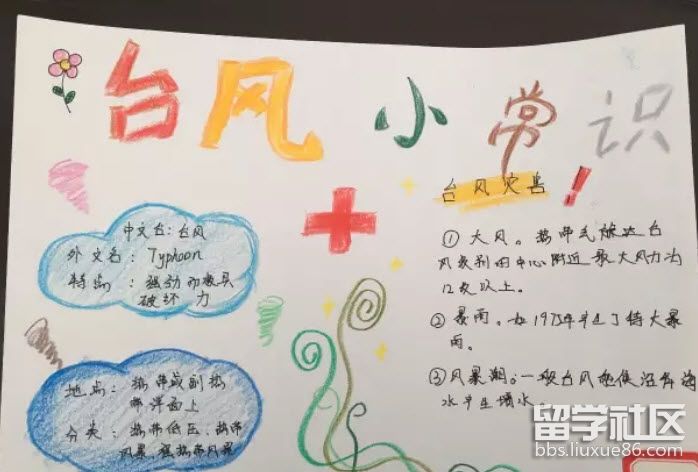 台风小常识
中文台：台风
外文名：Typhoon
特点：强劲而极具
破坏力
地点：热带或副热
带洋面上
分类：热带低压、热带
风暴、强热带风暴
台风灾害！
① 大风。热带气旋达台
风级别的中心附近最大风力为
12级以上。
② 暴雨。如1975年 了特大暴
雨。
③ 风暴潮：一般台风能使沿岸海
水产生增水。
留学社区
bbs.liuxue86.com